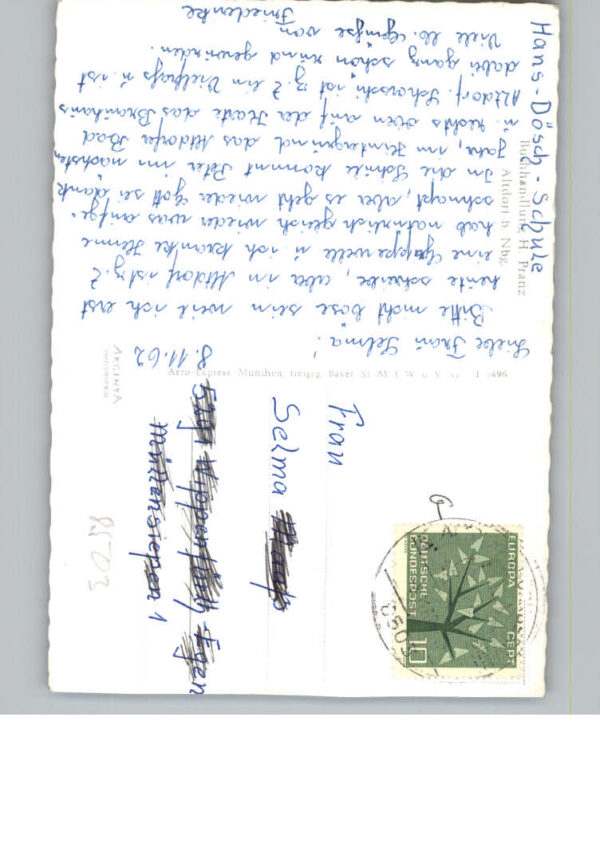 Hans-Dösch-Schule
Buchhandlung H. Pranz
Altdorf b. Nbg.
Liebe Frau Selma!
Bitte nicht böse sein weil ich erst
heute schreibe, aber in Altdorf ist z. Z.
eine Grippewelle u. ich kranke Henne
hab natürlich gleich wieder was aufge-
schnapt, aber es geht wieder Gott sei dank
In die Schule kommt Peter im nächsten
Jahr, im Hintergrund das Altdorfer Bad
u. rechts oben auf der Karte das Brauhaus
Altdorf. ist z. Z. ein Vielfraß u. ist
dabei ganz schön rund geworden.
Viele lb. Grüße von
Friedenke
8.11.62
ARGENTA
Aero-Express München, freigg. Bayer. St. M. f. W. u. V. Nr.
Frau
Selma
Wipperfürth - Egen
1
8503
EUROPA CEPT
DEUTSCHE BUNDESPOST
10